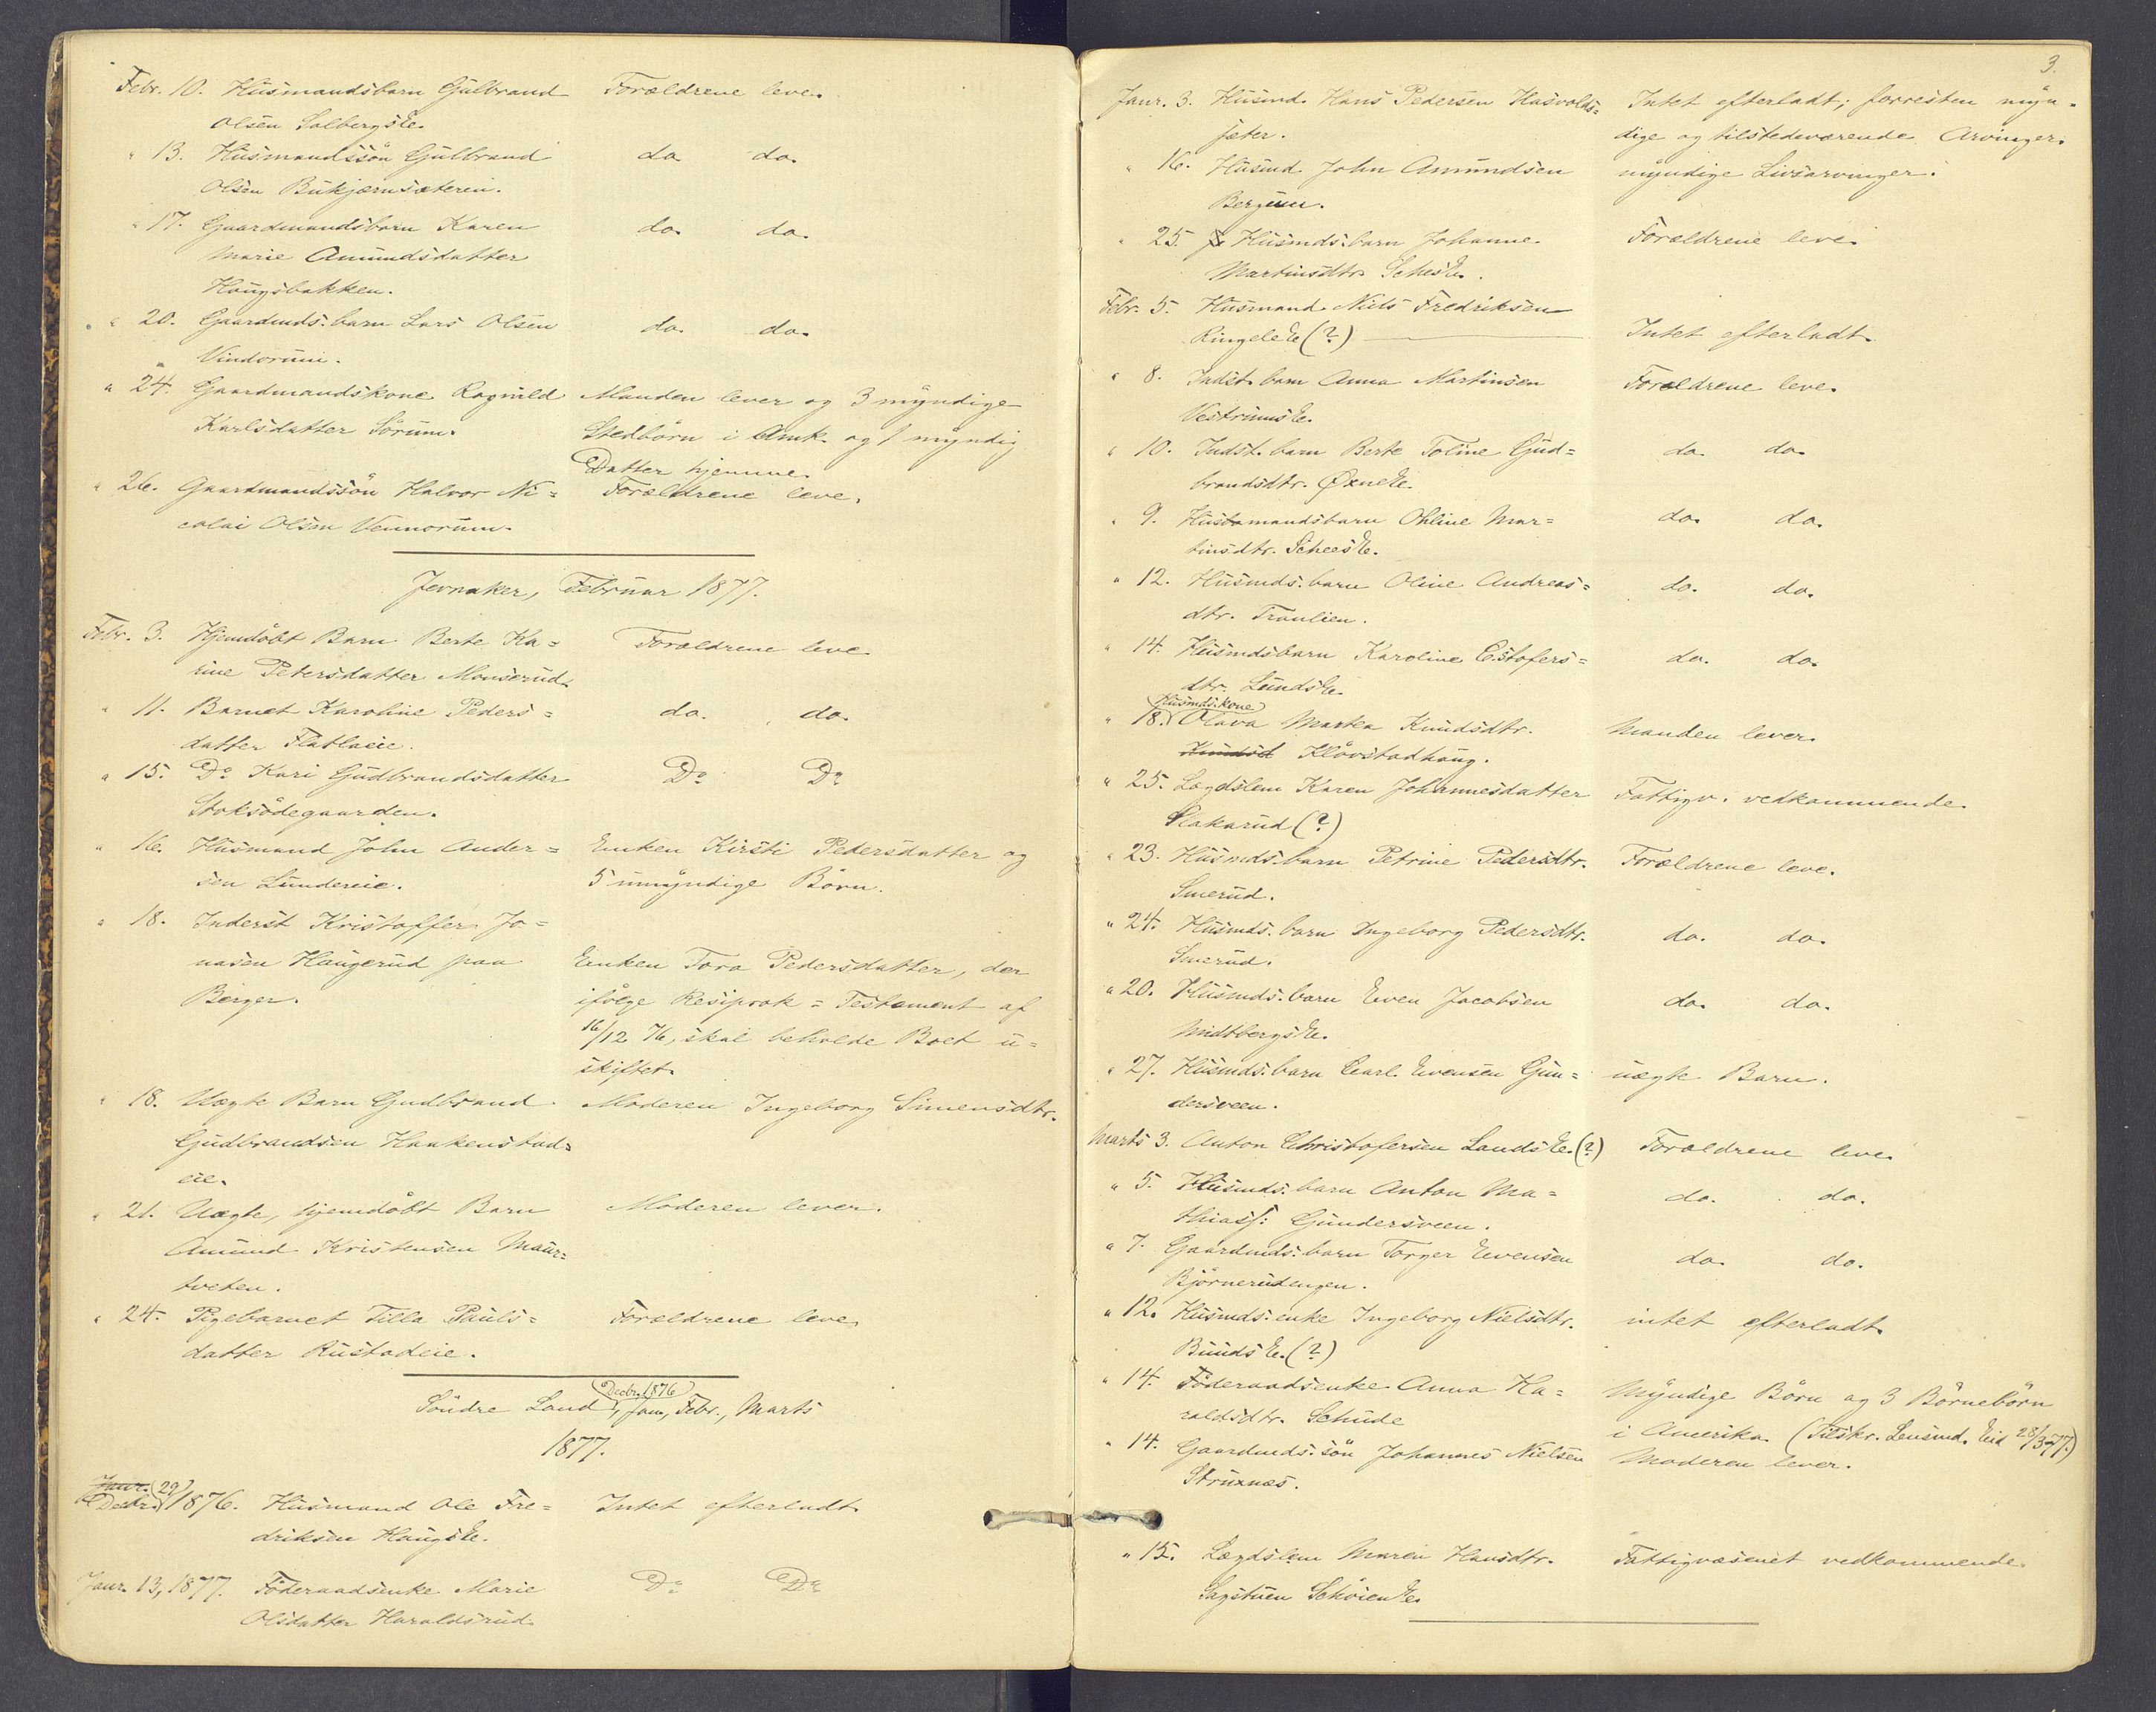 Febr. 10. Husmandsbarn Gulbrand Forældrene leve.
Olsen Solbergs Ee.
" 13. Husmandssön Gulbrand do do.
Olsen Bukjærnsæteren.
" 17. Gaardmandsbarn Karen do. do.
Marie Amundsdatter
Haugsbakken.
" 20. Gaardmds. barn Lars Olsen do. do.
Vindorum.
" 24. Gaardmandskone Ragnild Manden lever og 3 myndige
Karlsdatter Sörum. Stedbörn i Amk. og 1 myndig
Datter hjemme.
" 26. Gaardmandssön Halvor Ni= Forældrene leve.
colai Olsen Vennorum.
Jevnaker, Februar 1877.
Febr. 3. Hjemdöbt Barn Berte Ka= Forældrene leve.
rine Petersdatter Monserud.
" 11. Barnet Karoline Peders= do. do.
datter Flatlaeie.
" 15. Do Kari Gudbrandsdatter Do Do
Stoksödegaarden.
" 16. Husmand John Ander= Enken Kirsti Pedersdatter og
sen Lundereie. 5 umyndige Börn.
" 18. Inderst Kristoffer Jo=
nasen Haugerud paa Enken Tora Pedersdatter, der
Berger. ifölge Resiprok=Testament af
16/12 76, skal beholde Boet u=
skiftet.
" 18. Uægte Barn Gudbrand Moderen Ingeborg Simensdtr.
Gudbrandsen Haakenstad=
eie.
" 21. Uægte, hjemdöbt Barn Moderen lever.
Amund Kristensen Maur=
tveten.
" 24. Pigebarnet Tilla Pauls= Forældrene leve.
datter Rustadeie.
Decbr. 1876
Söndre Land, Jan, Febr., Marts
1877.
Janr. 29
Decbr. 1876. Husmand Ole Fre= Intet efterladt.
driksen Haugs Ee.
Janr. 13, 1877. Föderaadsenke Marie Do Do
Olsdatter Haraldsrud.
3.
Janr. 3. Husmd. Hans Pedersen Hasvolds= Intet efterladt; forresten myn=
sæter. dige og tilstedeværende Arvinger.
" 16. Husmd. John Amundsen myndige Livsarvinger.
Bergum.
" 25. Husmds. barn Johanne Forældrene leve.
Martinsdtr. Sches Ee.
Febr. 5. Husmand Niels Fredriksen
Ringele Ee (?) Intet efterladt.
" 8. Indst. barn Anna Martinsen Forældrene leve.
Vestrums Ee.
" 10. Indst. barn Berte Toline Gud= do. do.
brandsdtr. Øxne Ee.
" 9. Husmandsbarn Ohline Mar= do. do.
tinsdtr. Schees Ee.
" 12. Husmds. barn Oline Andreas= do. do.
dtr. Traulien.
" 14. Husmdsbarn Karoline C.stofers= do. do.
dtr. Lunds Ee.
Husmds.kone
" 18. Olava Martea Knudsdtr. Manden lever.
Knudsd Klövstadhaug.
" 25. Lægdslem Karen Johannesdatter Fattigv. vedkommende.
Slakarud (?)
" 23. Husmds. barn Petrine Pedersdtr. Forældrene leve.
Smerud.
" 24. Husmds. barn Ingeborg Pedersdtr. do. do.
Smerud.
" 20. Husmds. barn Even Jacobsen do. do.
Midtbergs Ee.
" 27. Husmds. barn Carl Evensen Gun= uægte Barn.
dersveen.
Marts 3. Anton Christofersen Lands Ee. (?) Forældrene leve.
" 5. Husmds. barn Anton Ma= do. do.
thiass: Gundersveen.
" 7. Gaardmds. barn Torger Evensen do. do.
Björnerudengen.
" 12. Husmds: enke Ingeborg Nielsdtr. intet efterladt.
Buuds Ee. (?)
" 14. Föderaadsenke Anna Ha= Myndige Börn og 3 Börnebörn
raldsdtr. Schude i Amerika. (Tilskr. Lensmd. Eid 28/3 77.)
" 14. Gaardmds. sön Johannes Nielsen Moderen lever.
Struxnæs.
" 15. Lægdslem Maren Hansdtr. Fattigvæsenet vedkommende.
Sagstuen Schöien Ee.